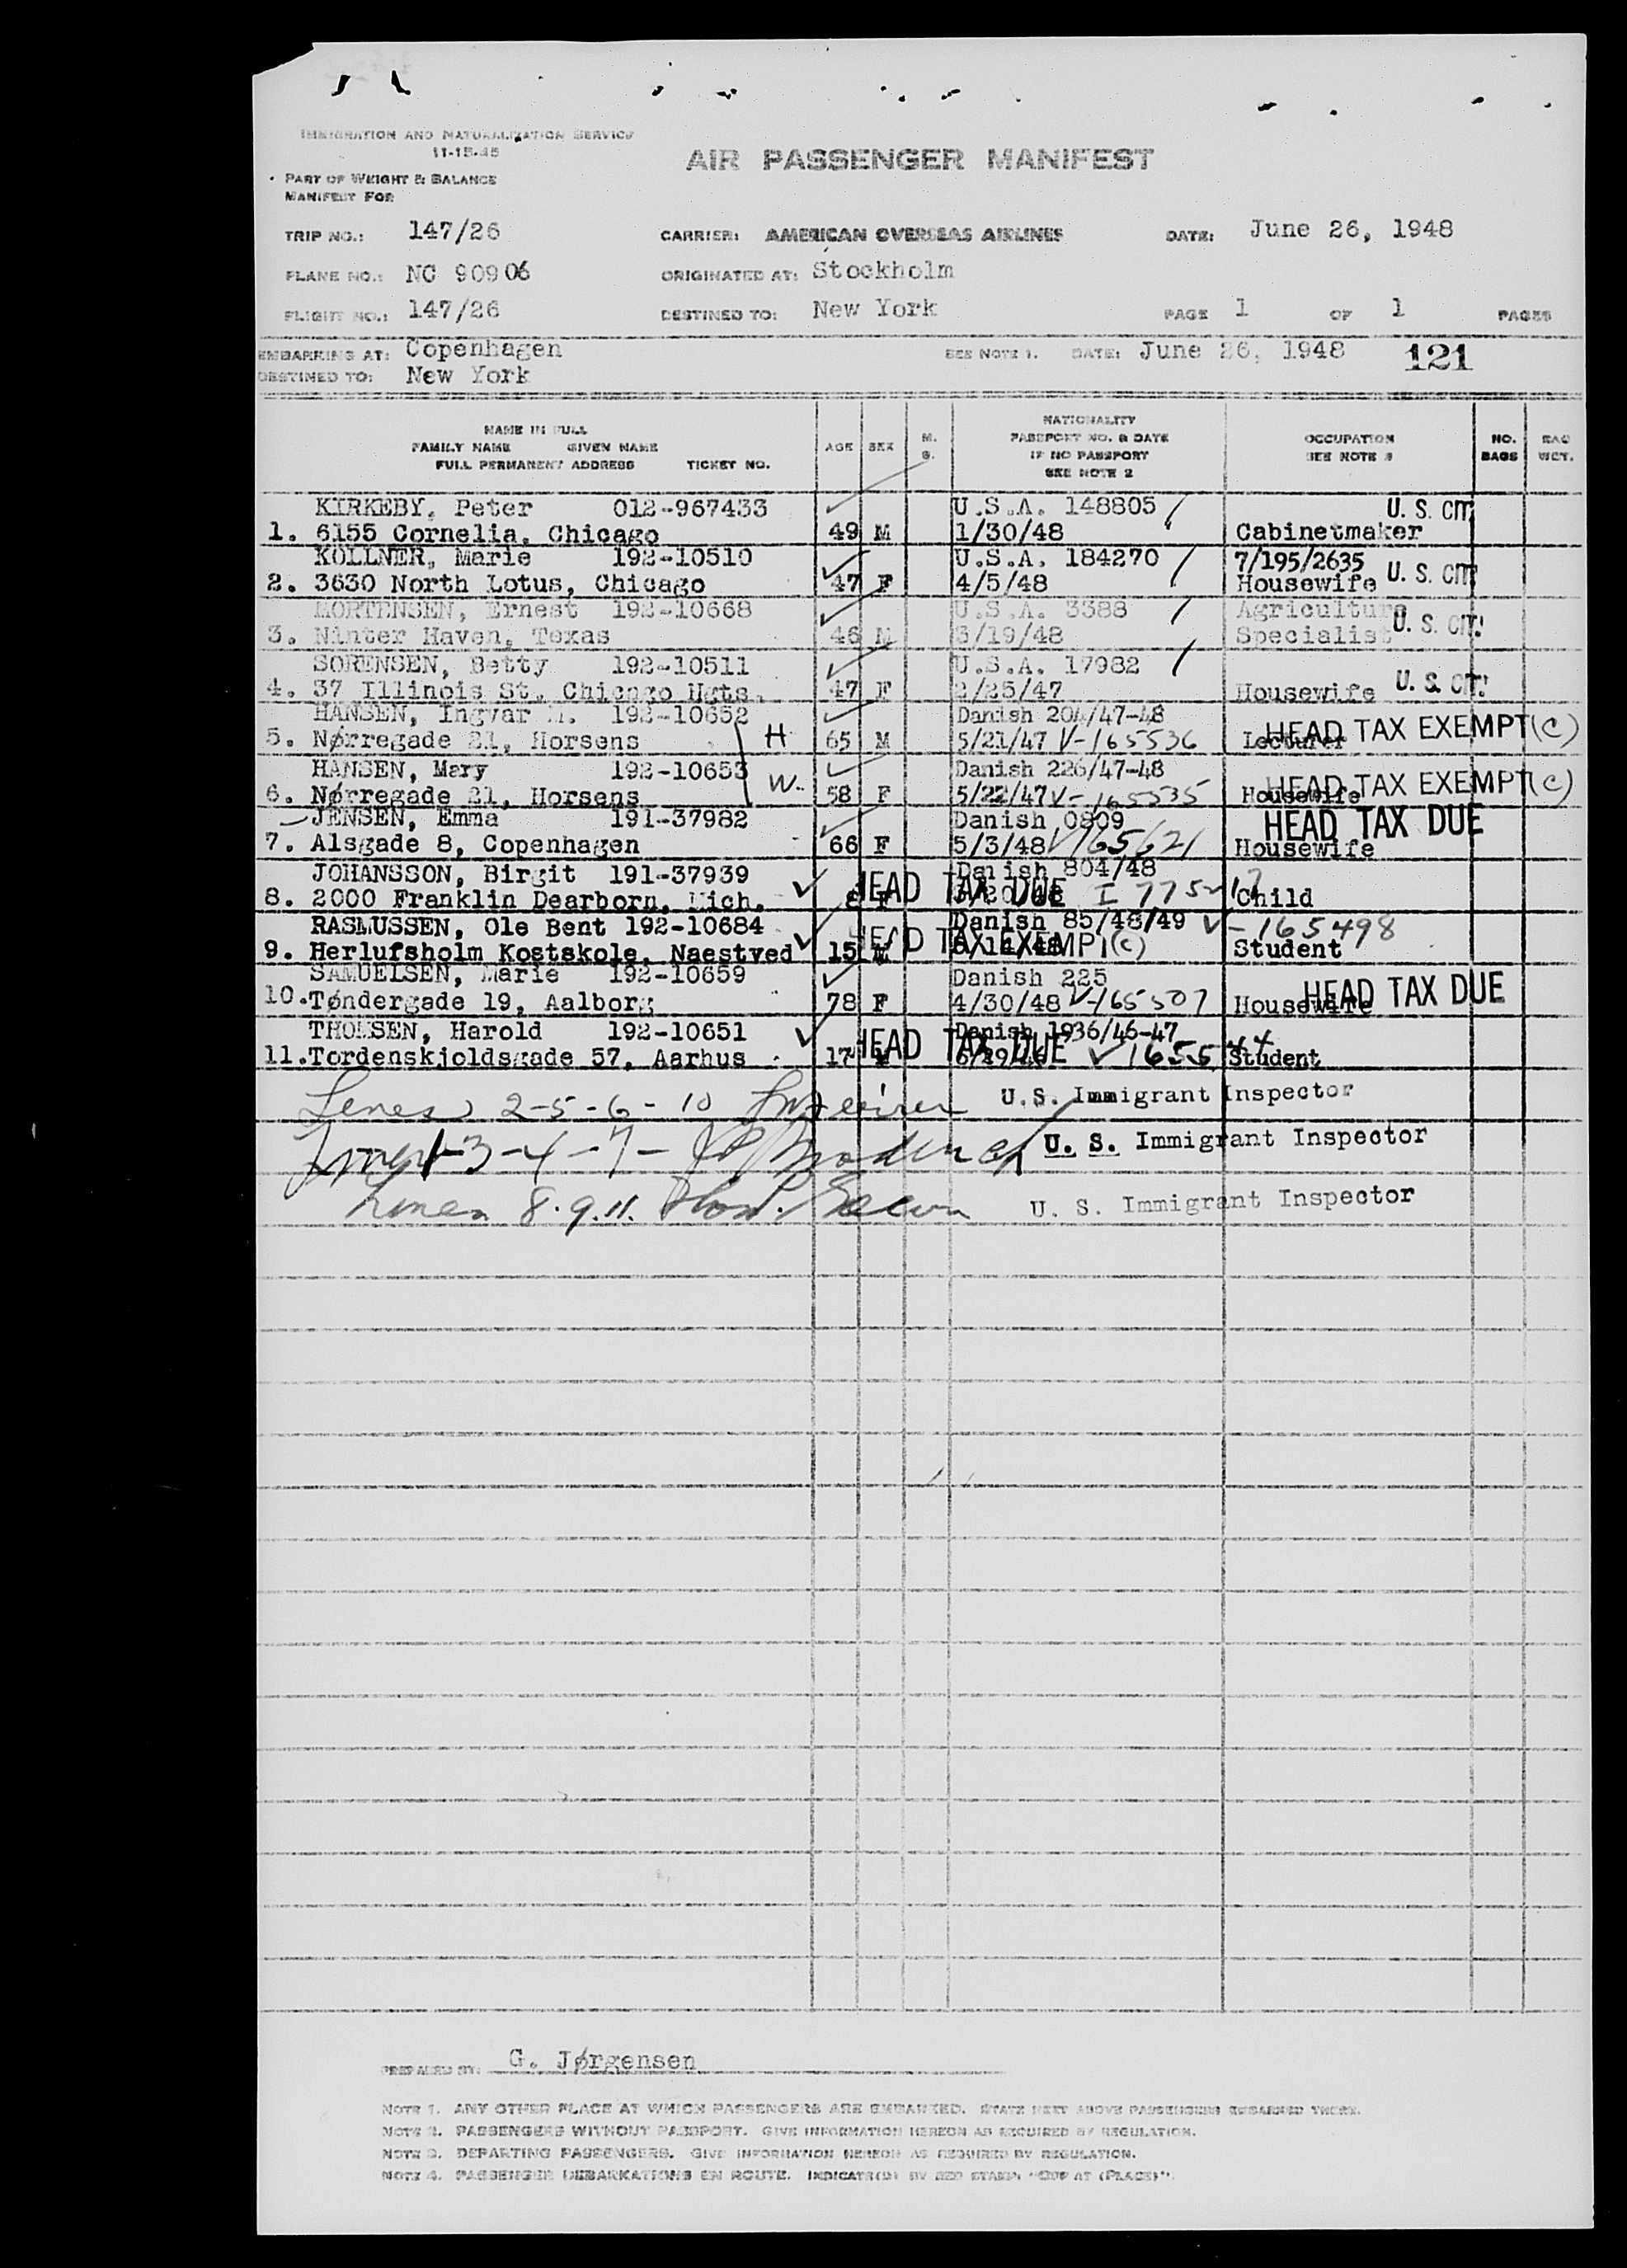 IMMIGRATION AND NATURALIZATION SERVICE
11-15-45
AIR PASSENGER MANIFEST
PART OF WEIGHT & BALANCE
MANIFEST FOR
TRIP NO.: 147/26 CARRIER: AMERICAN OVERSEAS AIRLINES DATE: June 26, 1948
PLANE NO.: NC 90906 ORIGINATED AT: Stockholm
FLIGHT NO.: 147/26 DESTINED TO: New York PAGE 1 OF 1 PAGES
EMBARKING AT: Copenhagen SEE NOTE 1. DATE: June 26, 1948 121
DESTINED TO: New York
NAME IN FULL
FAMILY NAME GIVEN NAME
FULL PERMANENT ADDRESS TICKET NO.
AGE SEX M. S.
NATIONALITY
PASSPORT NO. & DATE
IF NO PASSPORT
SEE NOTE 2
OCCUPATION
SEE NOTE 3
NO. BAGS
BAG WGT.
KIRKEBY, Peter 012-967433 U.S.A. 148805 U. S. CIT.
1. 6155 Cornelia, Chicago 49 M 1/30/48 Cabinetmaker
KOLLNER, Marie 192-10510 U.S.A. 184270 7/195/2635
2. 3630 North Lotus, Chicago 47 F 4/5/48 Housewife U. S. CIT.
MORTENSEN, Ernest 192-10668 U.S.A. 3388 Agriculture
3. Winter Haven, Texas 46 M 3/19/48 Specialist U. S. CIT.
SORENSEN, Betty 192-10511 U.S.A. 17982
4. 37 Illinois St. Chicago Hgts. 47 F 2/25/47 Housewife U. S. CIT.
HANSEN, Ingvar M. 192-10652 Danish 204/47-48
5. Nørregade 21, Horsens H 65 M 5/21/47 V-165536 Lecturer HEAD TAX EXEMPT (C)
HANSEN, Mary 192-10653 Danish 226/47-48
6. Nørregade 21, Horsens W. 58 F 5/22/47 V-165535 Housewife HEAD TAX EXEMPT (C)
JENSEN, Emma 191-37982 Danish 0809 HEAD TAX DUE
7. Alsgade 8, Copenhagen 66 F 5/3/48 V165621 Housewife
JOHANSSON, Birgit 191-37939 Danish 804/48
8. 2000 Franklin Dearborn, Mich. 8 F HEAD TAX DUE Child
RASMUSSEN, Ole Bent 192-10684 Danish 85/48/49 V-165498
9. Herlufsholm Kostskole, Naestved 15 M HEAD TAX EXEMPT (C) Student
SAMUELSEN, Marie 192-10659 Danish 225
10. Tøndergade 19, Aalborg 78 F 4/30/48 V-165507 Housewife HEAD TAX DUE
THOMSEN, Harold 192-10651 Danish 1936/46-47
11. Tordenskjoldsgade 57, Aarhus 17 HEAD TAX DUE Student
Lines 2-5-6-10 U.S. Immigrant Inspector
1-3-4-7- U. S. Immigrant Inspector
Lines 8.9.11. U. S. Immigrant Inspector
PREPARED BY: G. Jørgensen
NOTE 1. ANY OTHER PLACE AT WHICH PASSENGERS ARE EMBARKED. STATE NEXT ABOVE PASSENGERS EMBARKED THERE.
NOTE 2. PASSENGERS WITHOUT PASSPORT. GIVE INFORMATION HEREON AS REQUIRED BY REGULATION.
NOTE 3. DEPARTING PASSENGERS. GIVE INFORMATION HEREON AS REQUIRED BY REGULATION.
NOTE 4. PASSENGER DEBARKATIONS EN ROUTE. INDICATE(D) BY RED STAMP: "OFF AT (PLACE)".